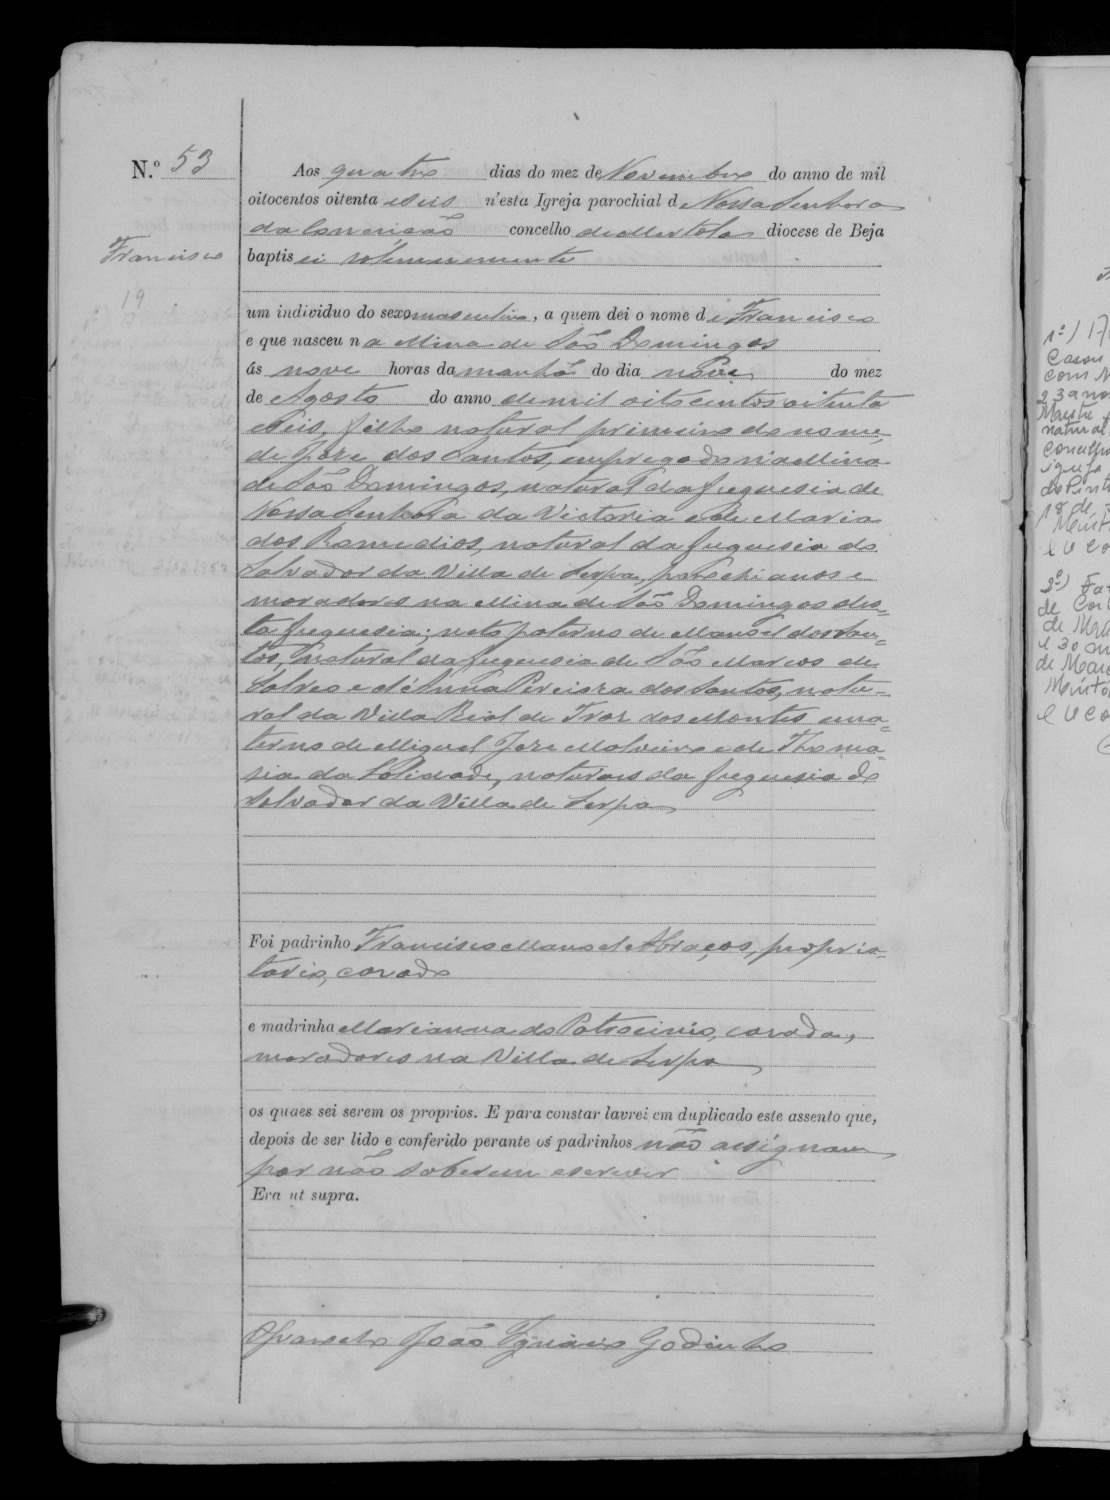 N.º 53
Aos quatro dias do mez de Novembro do anno de mil
oitocentos oitenta e seis n'esta Igreja parochial de Nossa Senhora
da Conceição concelho de Mertola diocese de Beja
Francisco
baptisei solemnemente
19
um individuo do sexo masculino, a quem dei o nome de Francisco
e que nasceu na Mina de São Domingos
ás nove horas da manhã do dia nove do mez
de Agosto do anno de mil oitocentos oitenta
e seis, filho natural primeiro do nome
de Joze dos Santos, empregado n'a Mina
de São Domingos, natural da freguesia de
Nossa Senhora da Victoria e de Maria
dos Remedios, natural da freguesia do
Salvador da Villa de Serpa, parochianos e
moradores na Mina de São Domingos des=
ta freguesia; neto paterno de Manoel dos San=
tos, natural da freguesia de São Marcos de
e d'Anna Pereira dos Santos, natu=
ral da Villa Real de Traz dos Montes e ma=
terno de Miguel Joze e de Thoma=
sia da Solidade, naturaes da freguesia do
Salvador da Villa de Serpa
Foi padrinho Francisco Manoel Abraços, proprie=
tario, casado
e madrinha Marianna do Patrocinio, casada,
moradores na Villa de Serpa
os quaes sei serem os proprios. E para constar lavrei em duplicado este assento que,
depois de ser lido e conferido perante os padrinhos não assignam
por não saberem escrever
Era ut supra.
O Parocho João Ignacio Godinho
1º) 17
Casou
com M
23 anos
natural
concelho
igreja
18 de
2º)
de
de
e 30 an
de